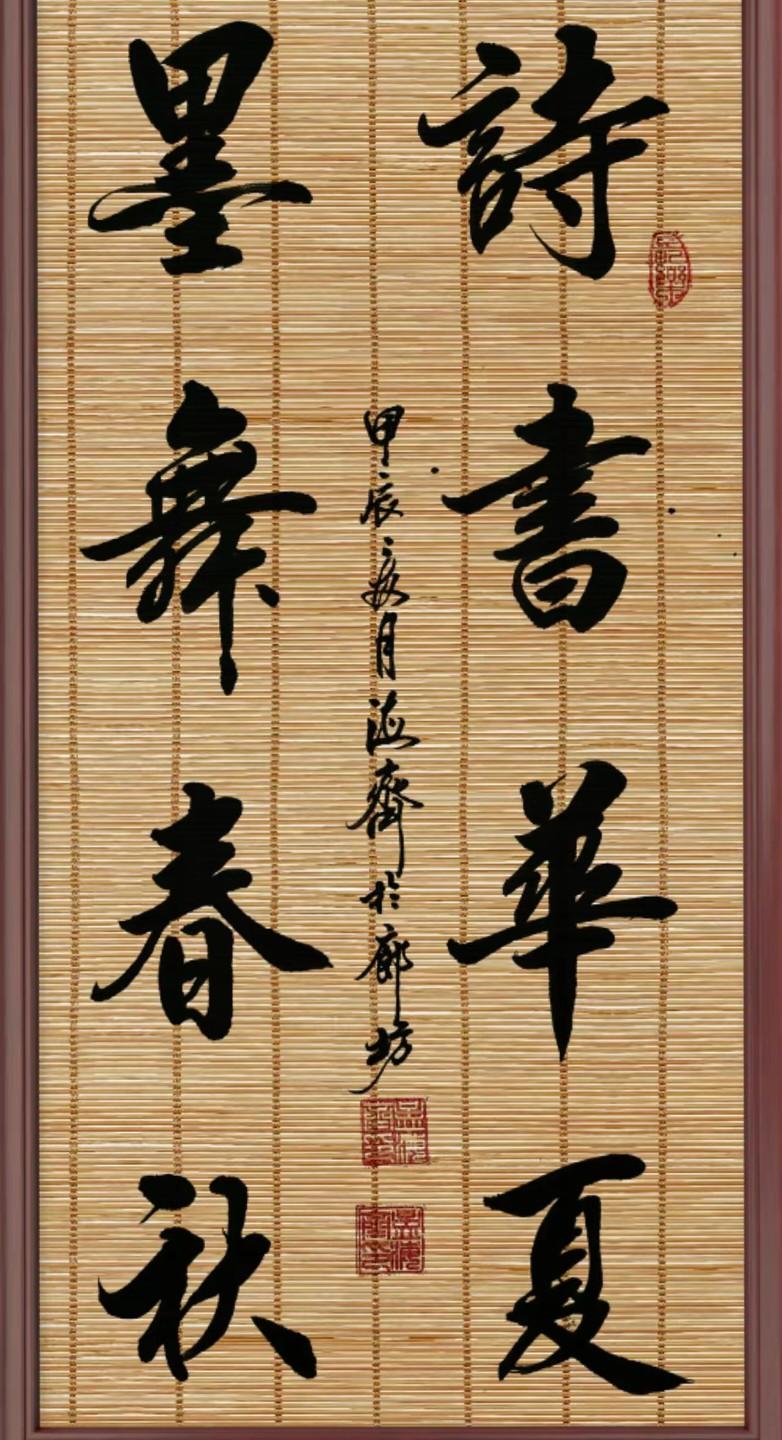 詩書華夏
墨舞春秋
甲辰夏月海齊於廊坊